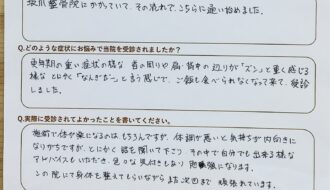 坂川整骨院にかかっていて、その流れで、こちらに通い始めました。
Q.どのような症状にお悩みで当院を受診されましたか？
更年期の重い症状の様な 首の周りや肩・背中の辺りが「ズン」と重く感じる
様な とにかく「なんぎだー」と言う感じで、ご飯も食べられなくなって来て、受診
しました。
Q.実際に受診されてよかったことを書いてください。
施術で体が楽になるのはもちろんですが、体調が悪いと気持ちが内向きに
なりがちですが、とにかく話を聞いて下さり その中で自分でも出来る様な
アドバイスもいただき、色々な気付きもあり 勉強になります。
この院にて身体を整えてもらいながら 次回まで 頑張れています。